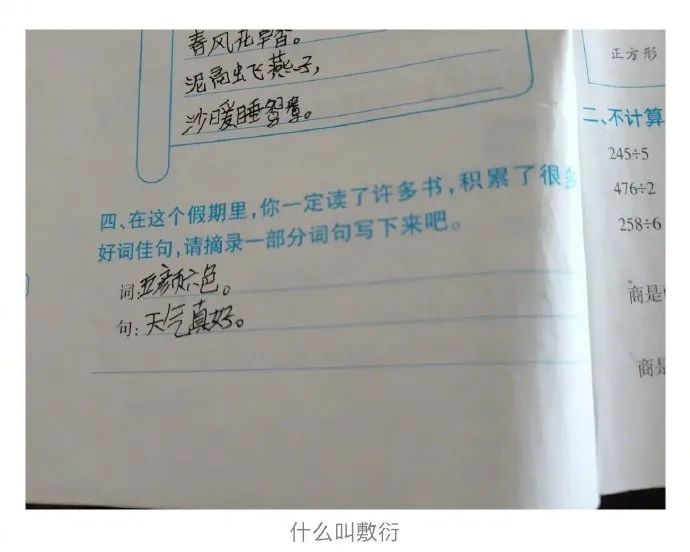 春风花草香。
泥融飞燕子，
沙暖睡鸳鸯。
四、在这个假期里，你一定读了许多书，积累了很多
好词佳句，请摘录一部分词句写下来吧。
词：五颜六色。
句：天气真好。
正方形
二、不计算
245÷5
476÷2
258÷6
商是
商是
什么叫敷衍